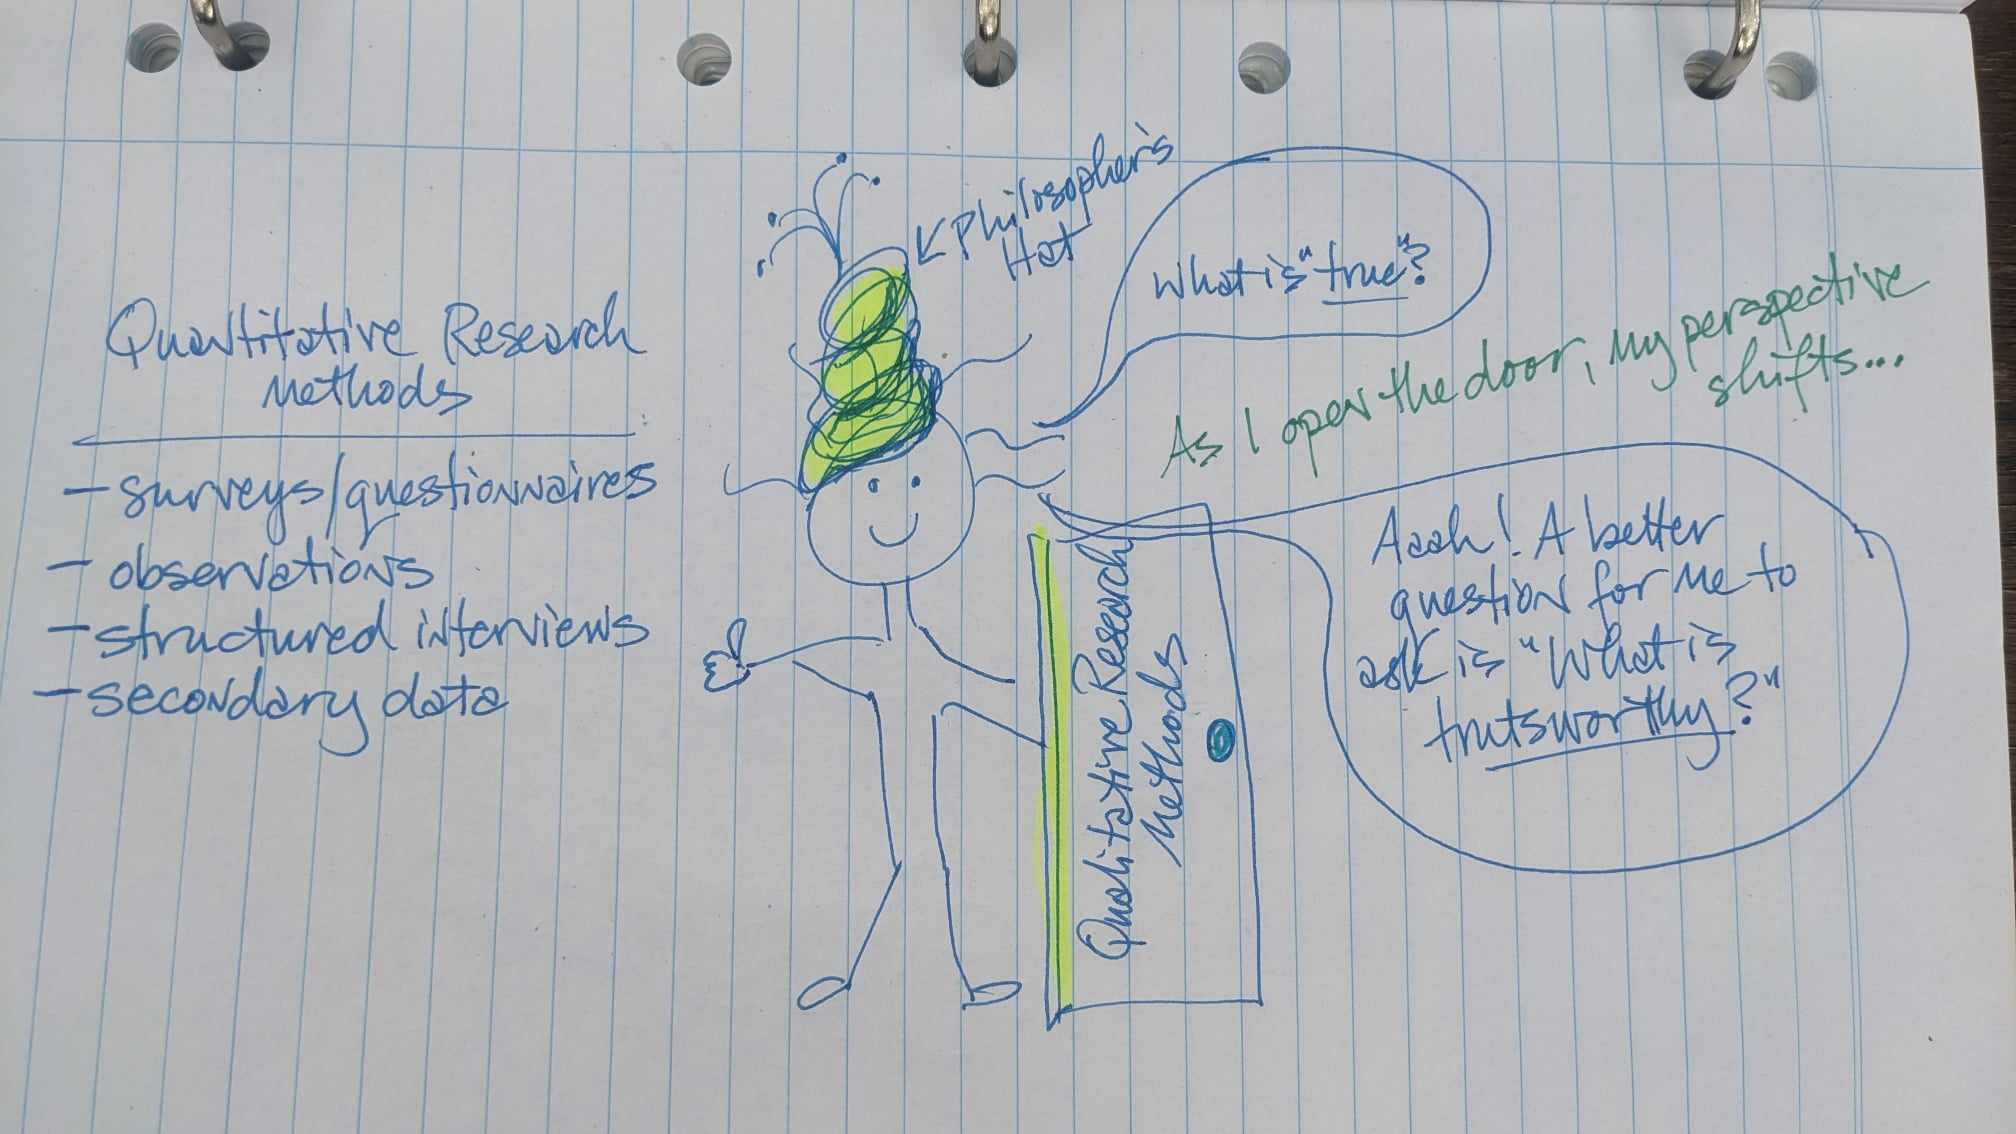 Quantitative Research
Methods
- surveys/questionnaires
- observations
- structured interviews
- secondary data
Philosopher's
Hat
What is "true"?
As I open the door, my perspective
shifts...
Qualitative Research
Methods
Aaah! A better
question for me to
ask is "What is
trutsworthy?"